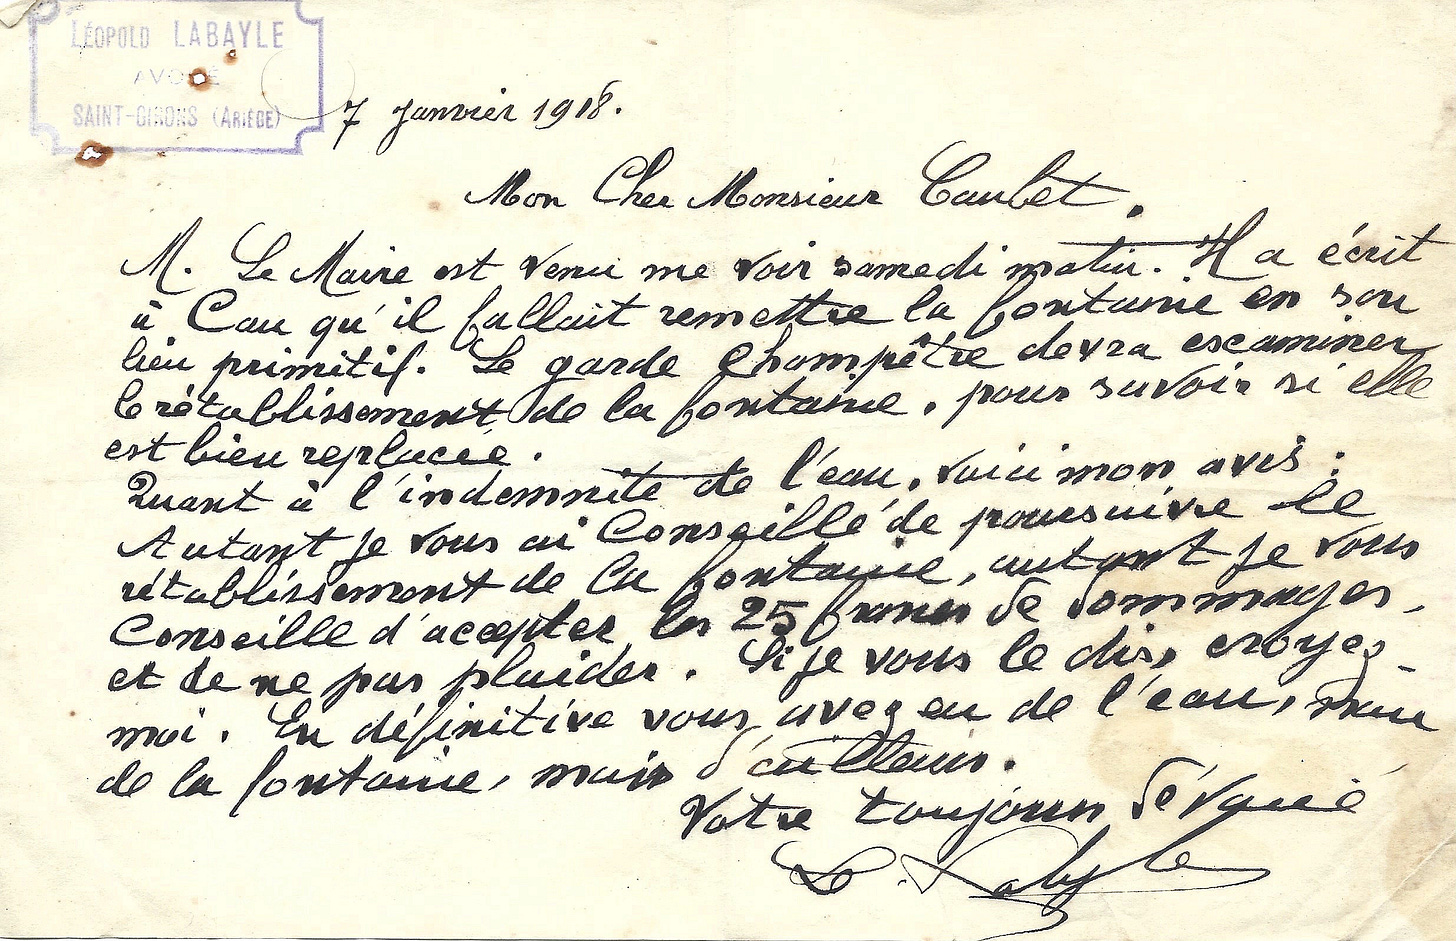 LÉOPOLD LABAYLE
AVOUÉ
SAINT-GIRONS (ARIÈGE)
7 Janvier 1918.
Mon Cher Monsieur Caubet.
M. Le Maire est venu me voir samedi matin. Il a écrit
à Cau qu'il fallait remettre la fontaine en son
lieu primitif. Le garde Champêtre devra escaminer
le rétablissement de la fontaine, pour savoir si elle
est bien replacée.
Quant à l'indemnité de l'eau, voici mon avis :
Autant je vous ai Conseillé de poursuivre le
rétablissement de la fontaine, autant je vous
Conseille d'accepter les 25 francs de dommages,
et de ne pas plaider. Si je vous le dis, croyez-
moi. En définitive vous avez eu de l'eau, non
de la fontaine, mais d'ailleurs.
Votre toujours dévoué
L. Labayle